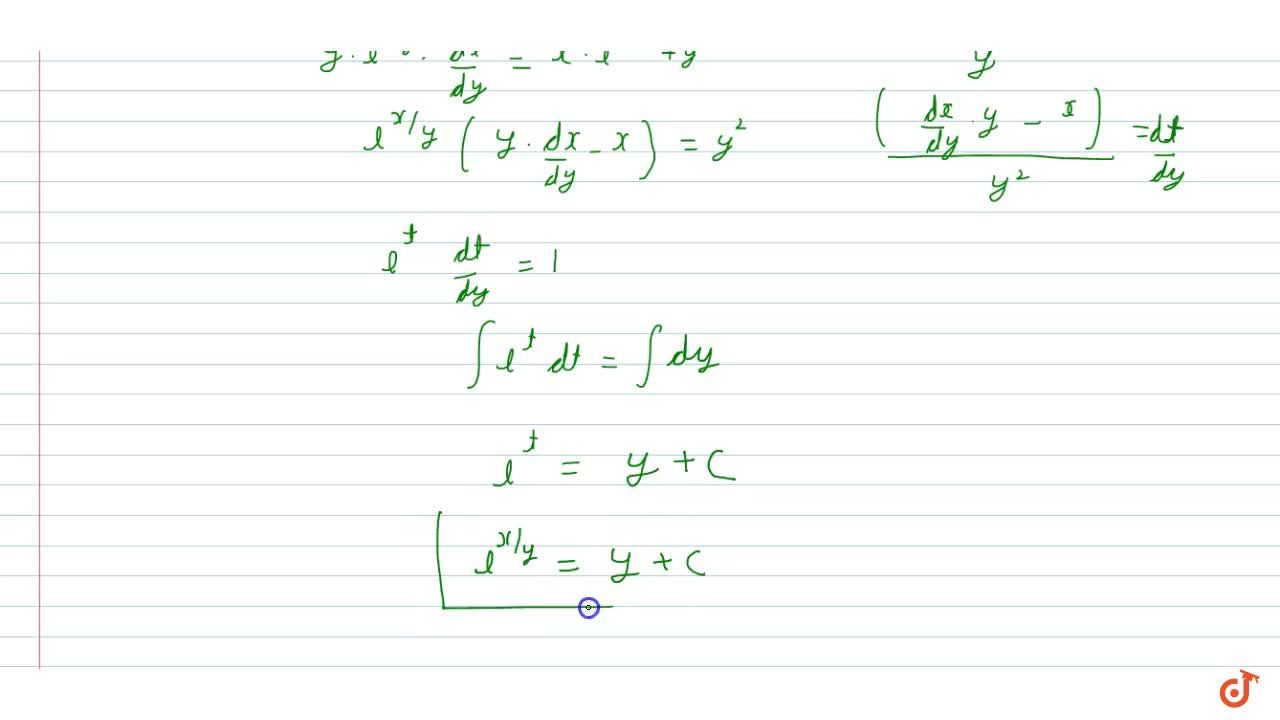 dx/dy = + y
y
e^{x/y} ( y · dx/dy - x ) = y²
( dx/dy · y - x ) / y² = dt/dy
e^t dt/dy = 1
∫ e^t dt = ∫ dy
e^t = y + C
e^{x/y} = y + C